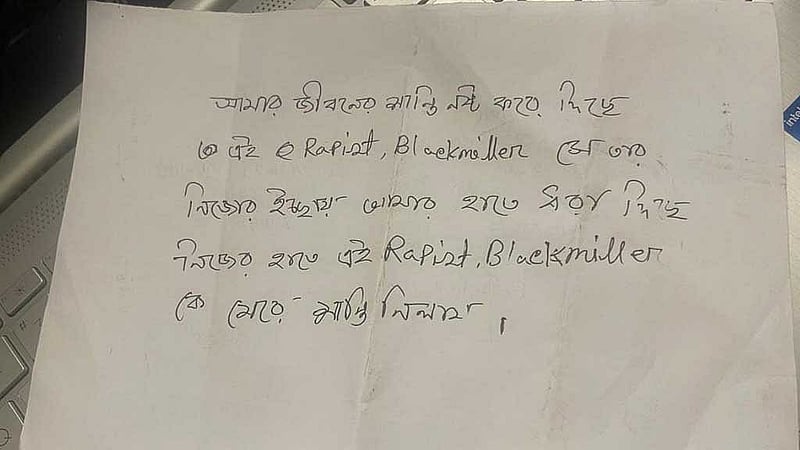 আমার জীবনের শান্তি নষ্ট করে দিছে
এই Rapist, Blackmiller সে তার
নিজের ইচ্ছায় আমার হাতে ধরা দিছে
নিজের হাতে এই Rapist, Blackmiller
কে মেরে শান্তি নিলাম।
intel